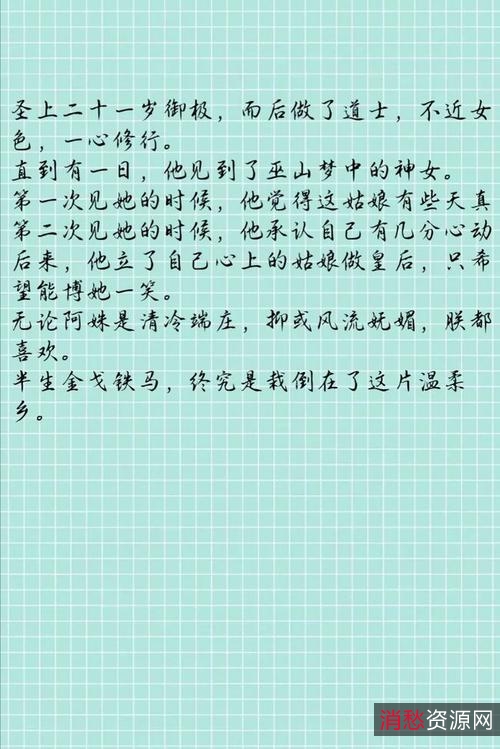 圣上二十一岁御极，而后做了道士，不近女
色，一心修行。
直到有一日，他见到了巫山梦中的神女。
第一次见她的时候，他觉得这姑娘有些天真
第二次见她的时候，他承认自己有几分心动
后来，他立了自己心上的姑娘做皇后，只希
望能博她一笑。
无论阿姝是清冷端庄，抑或风流妩媚，朕都
喜欢。
半生金戈铁马，终究是栽倒在了这片温柔
乡。
消愁资源网